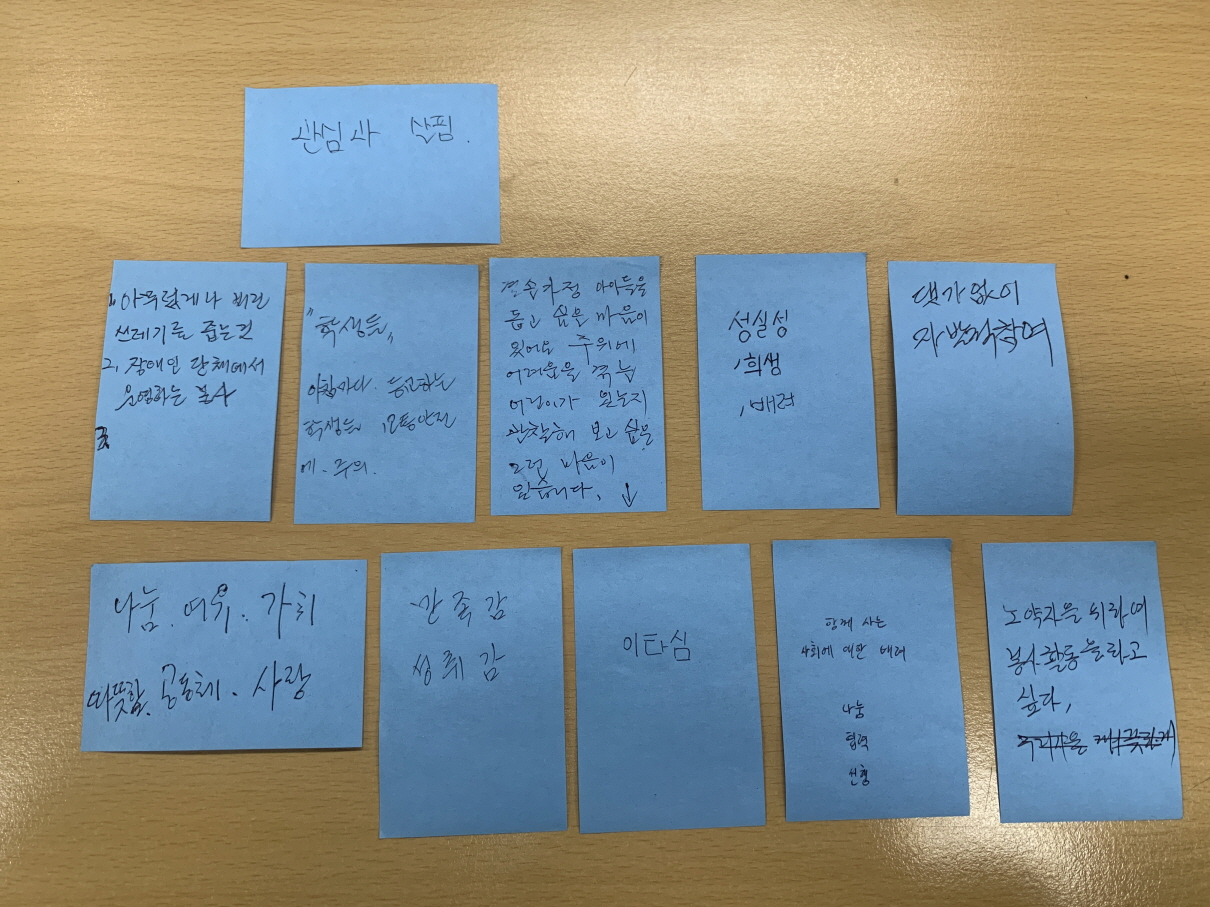 관심사 살핌.
1, 아무렇게나 버린
쓰레기를 줍는것
2, 장애인 단체에서
운영하는 봉사
"학생들,
아침마다. 등교하는
학생들 교통안전
에. 주의.
결손가정 아이들을
돕고 싶은 마음이
있어요 주위에
어려움을 겪는
어린이가 있는지
관찰해 보고 싶은
그런 마음이
있습니다, ↓
성실성
, 희생
, 배려
댓가없이
자발적참여
나눔. 여유. 가치
따뜻함. 공동체. 사랑
만족감
성취감
이타심
함께 사는
사회에 대한 배려
나눔
협력
선행
노약자을 위하여
봉사활동을하고
싶다,